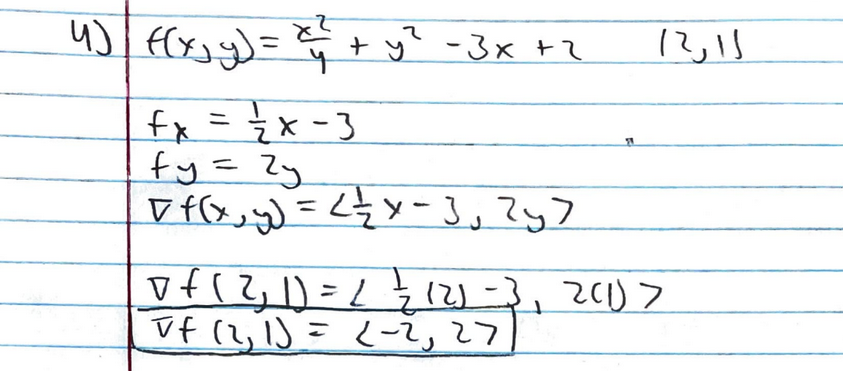 4) f(x,y) = x²/4 + y² - 3x + 2 (2,1)
fx = 1/2 x - 3
fy = 2y
∇f(x,y) = <1/2 x - 3, 2y>
∇f(2,1) = < 1/2 (2) - 3, 2(1) >
∇f(2,1) = <-2, 2>